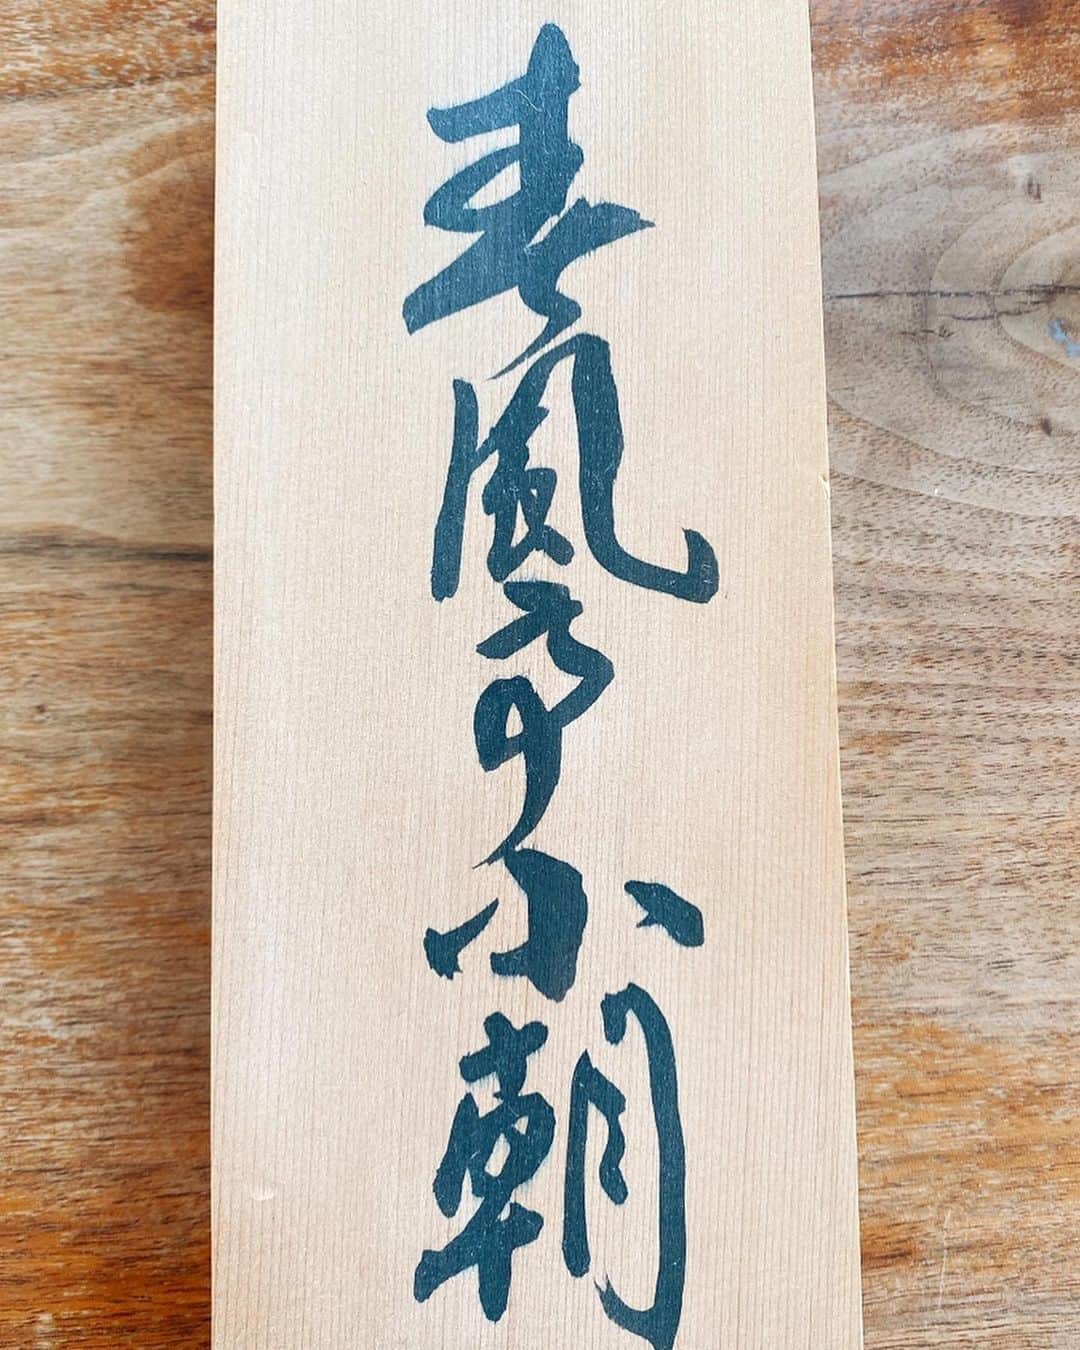 春風亭小朝